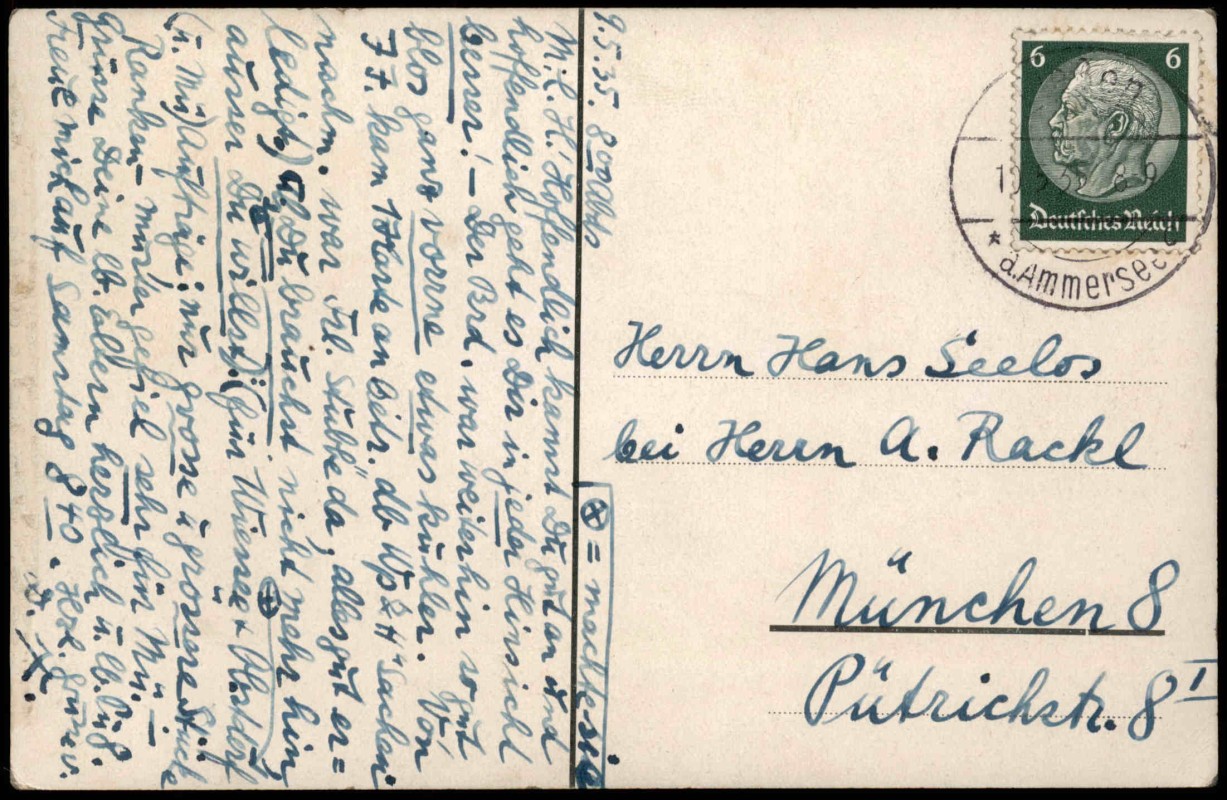 9.5.35. 8 00 Abds
M. L. H.! Hoffendlich kamst Du gut an und
hoffendlich geht es Dir in jeder Hinsicht
besser! – Der Brd. war weiterhin so gut
blos ganz vorne etwas kühler. Von
J. F. kam 1 Karte an betr. db Wp & "H" Sachen
nachm. war Frl. Stubbe da, alles gut er=
ledigt, Du brauchst nicht mehr hin
ausser Du willst! (für Wiense + Obstdorf
(u. Mü) Aufträge: nur grosse u grossere Stücke
Ranken – muster gefiel sehr für Mü. –
Grüsse Deine lb. Eltern herzlich u.
freue mich auf Samstag 8 40. Hzl. Grüsse v.
⊗ = machte sie
6 6
Deutsches Reich
a. Ammersee
Herrn Hans Seelos
bei Herrn A. Rackl
München 8
Pütrichstr. 8 I